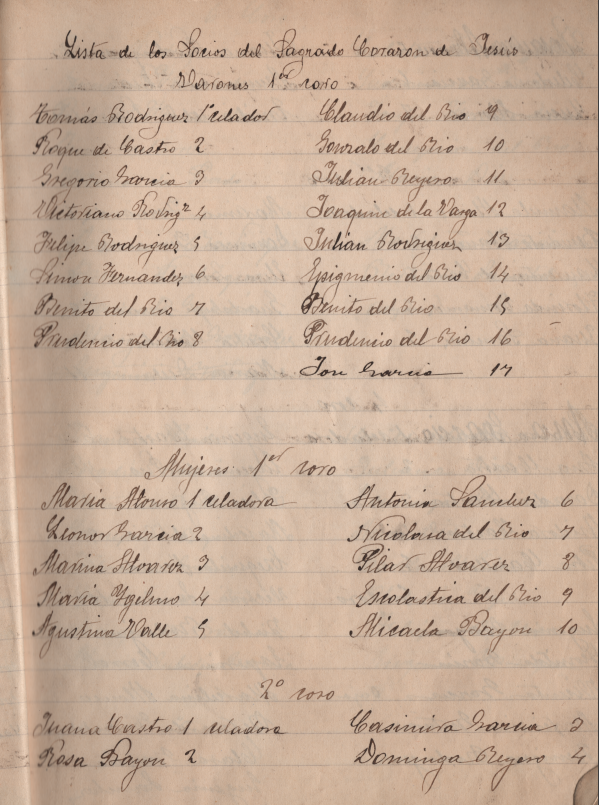 Lista de los Socios del Sagrado Corazon de Jesús
Varones 1er coro
Tomás Rodriguez 1 celador Claudio del Rio 9
Roque de Castro 2 Gonzalo del Rio 10
Gregorio Garcia 3 Julian Reyero 11
Victoriano Rodrigz 4 Joaquin de la Varga 12
Felipe Rodriguez 5 Julian Rodriguez 13
Simon Fernandez 6 Epigmenio del Rio 14
Benito del Rio 7 Benito del Rio 15
Prudencio del Rio 8 Prudencio del Rio 16
Jose Garcia 17
Mujeres 1er coro
Maria Alonso 1 celadora Antonia Sanchez 6
Leonor Garcia 2 Nicolasa del Rio 7
Marina Alvarez 3 Pilar Alvarez 8
Maria 4 Escolastica del Rio 9
Agustina Valle 5 Micaela Bayon 10
2º coro
Juana Castro 1 celadora Casimira Garcia 3
Rosa Bayon 2 Dominga Reyero 4